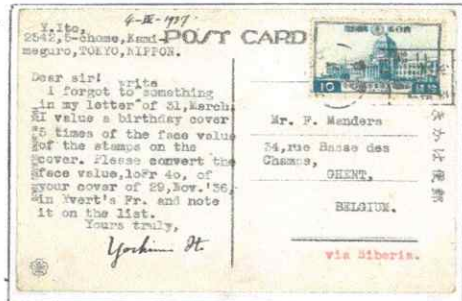 4-IV-1937.
Y.Ito,
2542,5-chome,Kami-
meguro,TOKYO,NIPPON.
POST CARD
Dear sir!
write
I forgot to something
in my letter of 31,March.
I value a birthday cover
5 times of the face value
of the stamps on the
cover. Please convert the
face value,1oFr 4o, of
your cover of 29,Nov.'36,
in Yvert's Fr. and note
it on the list.
Yours truly,
Yoshio Ito
10
Mr. F. Manders
34,rue Basse des
Champs,
GHENT,
BELGIUM.
via Siberia.
きかは便郵